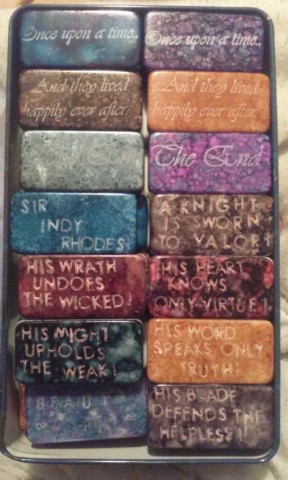 Once upon a time..
Once upon a time..
And they lived
happily ever after.
And they lived
happily ever after.
The End
SIR
INDY
RHODES
A KNIGHT
IS SWORN
TO VALOR!
HIS WRATH
UNDOES
THE WICKED!
HIS HEART
KNOWS
ONLY VIRTUE!
HIS MIGHT
UPHOLDS
THE WEAK!
HIS WORD
SPEAKS ONLY
TRUTH!
HIS BLADE
DEFENDS THE
HELPLESS!